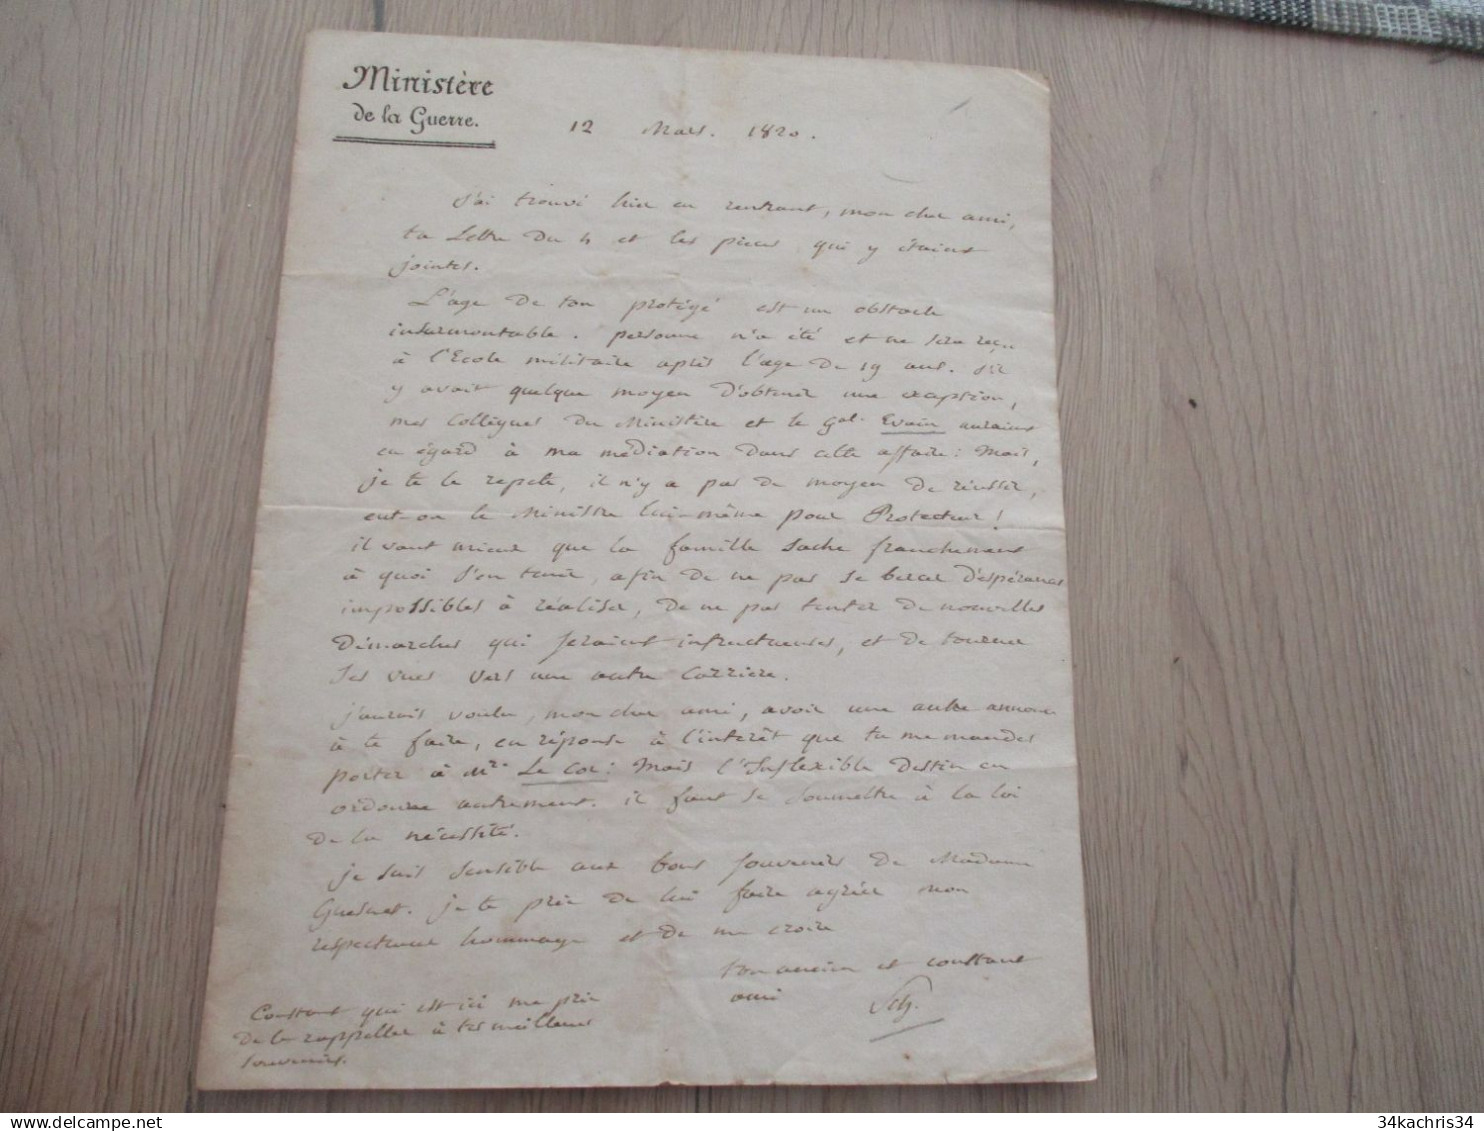 Ministère
de la Guerre.
12 Mars. 1820.
J'ai trouvé hier en rentrant, mon cher ami,
ta Lettre du 4 et les pieces qui y étaient
jointes.
L'age de ton protégé est un obstacle
insurmontable. personne n'a été et ne sera reçu
à l'Ecole militaire après l'age de 19 ans. s'il
y avait quelque moyen d'obtenir une exception,
mes collègues du Ministère et le Gal. Evain auraient
eu égard à ma médiation dans cette affaire: Mais,
je te le repete, il n'y a pas de moyen de réussir,
eut-on le Ministre lui-même pour Protecteur!
il vaut mieux que la famille sache franchement
à quoi s'en tenir, afin de ne pas se bercer d'espérances
impossibles à réaliser, de ne pas tenter de nouvelles
démarches qui seraient infructueuses, et de tourner
ses vues vers une autre carriere.
j'aurais voulu, mon cher ami, avoir une autre annonce
à te faire, en réponse à l'interêt que tu me mandes
porter à Mr. Le Cor: Mais l'Inflexible Destin en
ordonne autrement. il faut se soumettre à la loi
de la nécessité.
je suis sensible aux bons souvenirs de Madame
Guesnet. je te prie de lui faire agréer mon
respectueux hommage et de me croire
ton ancien et constant
ami Sch.
Constant qui est ici me prie
de le rappeller à tes meilleurs
souvenirs.
34kachris34